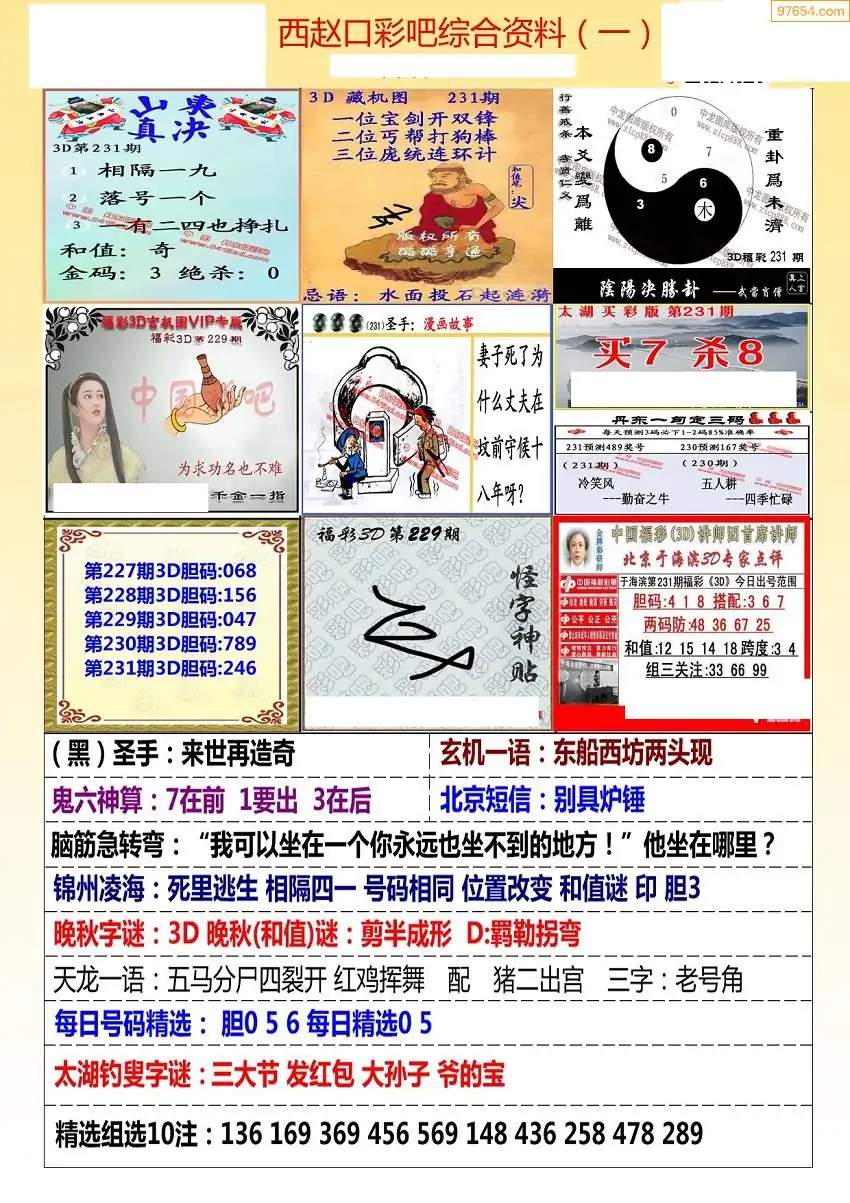 97654.com
西赵口彩吧综合资料（一）
山東
真决
3D第231期
1 相隔一九
2 落号一个
3 一有二四也挣扎
和值：奇
金码：3 绝杀：0
3D 藏机图 231期
一位宝剑开双锋
二位丐帮打狗棒
三位庞统连环计
和值笔：尖
版权所有
璐璐亨通
忌语：水面投石起涟漪
行善戒杀 孝贤仁义
本爻變爲離
重卦爲未濟
中龙图库版权所有
www.zlcp888.com
0
8
7
5
6
3
木
3D福彩 231 期
陰陽决勝卦 ——武當肓僧
福彩3D玄机图VIP专版
福彩3D第229期
为求功名也不难
千金一指
(231)圣手：漫画故事
妻子死了为
什么丈夫在
坟前守侯十
八年呀?
太湖买彩版 第231期
买7 杀8
丹东一句定三码
每天预测3码必下1-2码85%准确率
231预测489奖号 230预测167奖号
(231期) (230期)
冷笑风 五人耕
---勤奋之牛 ---四季忙碌
第227期3D胆码:068
第228期3D胆码:156
第229期3D胆码:047
第230期3D胆码:789
第231期3D胆码:246
福彩3D第229期
怪字神贴
金牌彩研师
中国福彩(3D)讲师团首席讲师
北京于海滨3D专家点评
中国福利彩票
公平 公正 公开
于海滨第231期福彩《3D》今日出号范围
胆码:4 1 8 搭配:3 6 7
两码防:48 36 67 25
和值:12 15 14 18 跨度:3 4
组三关注:33 66 99
(黑)圣手：来世再造奇
玄机一语：东船西坊两头现
鬼六神算：7在前 1要出 3在后
北京短信：别具炉锤
脑筋急转弯：“我可以坐在一个你永远也坐不到的地方！”他坐在哪里？
锦州凌海：死里逃生 相隔四一 号码相同 位置改变 和值谜 印 胆3
晚秋字谜：3D 晚秋(和值)谜：剪半成形 D:羁勒拐弯
天龙一语：五马分尸四裂开 红鸡挥舞 配 猪二出宫 三字：老号角
每日号码精选： 胆0 5 6 每日精选0 5
太湖钓叟字谜：三大节 发红包 大孙子 爷的宝
精选组选10注：136 169 369 456 569 148 436 258 478 289